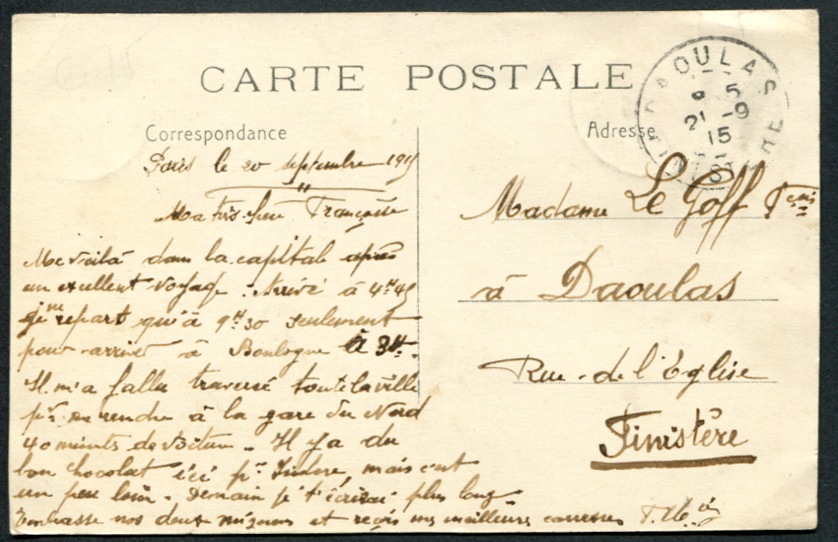 CARTE POSTALE
Correspondance
Adresse
DAOULAS
5
21 -9
15
FINISTERE
Paris le 20 septembre 1915
Ma très chère Françoise
Me voilà dans la capitale après
un exellent voyage. Arrivé à 4H45
je ne repart qu'à 9H30 seulement
pour arriver à Boulogne à 3H.
Il m'a fallu traversé toute la ville
pr me rendre à la gare du Nord
40 minuts de voiture. Il y a du
bon chocolat ici pr, mais c'est
un peu loin. Demain je t'écrirai plus long
Embrasse nos deux mignons et reçois mes meilleures caresses
Madame Le Goff Fçois
à Daoulas
Rue de l'Eglise
Finistère